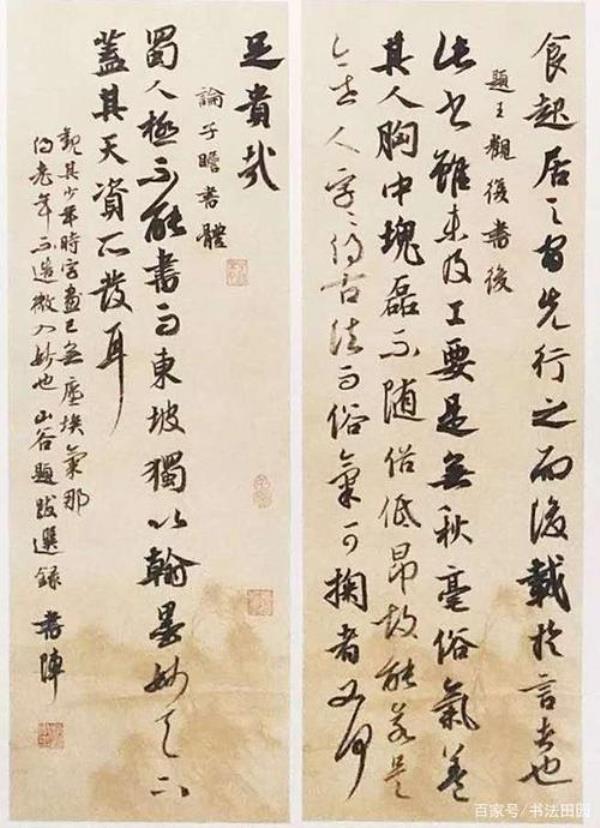 食起居之間先行之而後載於言者也
題王觀復書後
此書雖未及工要是無秋毫俗氣蓋
其人胸中塊磊不隨俗低昂故能若是
今世人字字得古法而俗氣可掬者又何
足貴哉
論子瞻書體
蜀人極不能書而東坡獨以翰墨妙天下
蓋其天資所發耳
觀其少年時字畫已無塵埃氣那
得老年不造微入妙也 山谷題跋選錄 書陣
百家号/书法田园